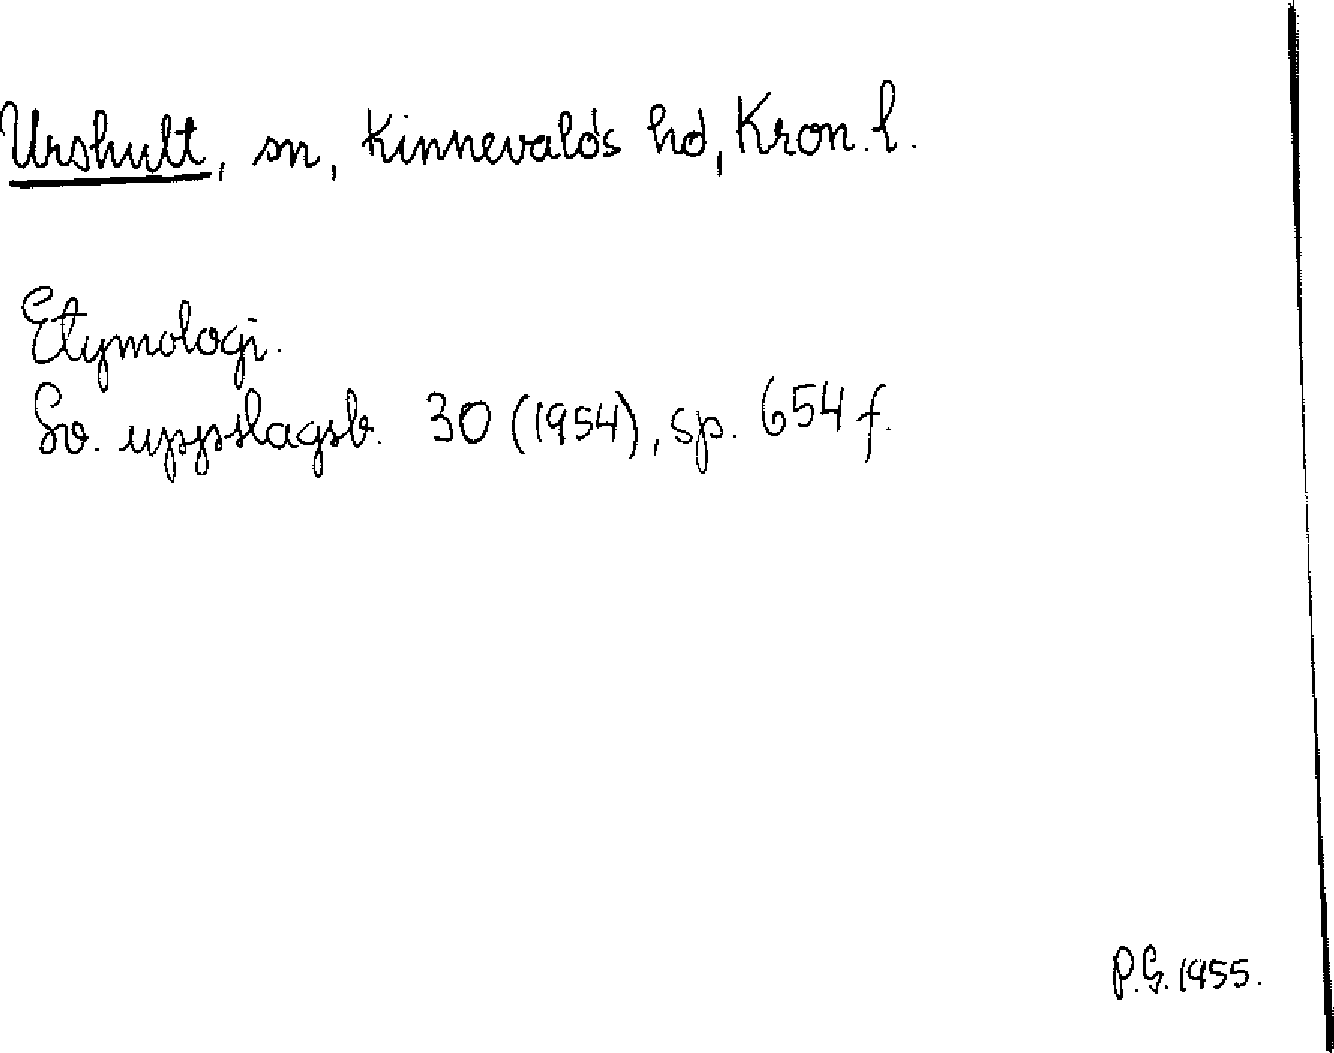 Urshult, sn, Kinnevalds hd, Kron. l.
Etymologi.
Sv. uppslagsb. 30 (1954), sp. 654 f.
P.G. 1955.